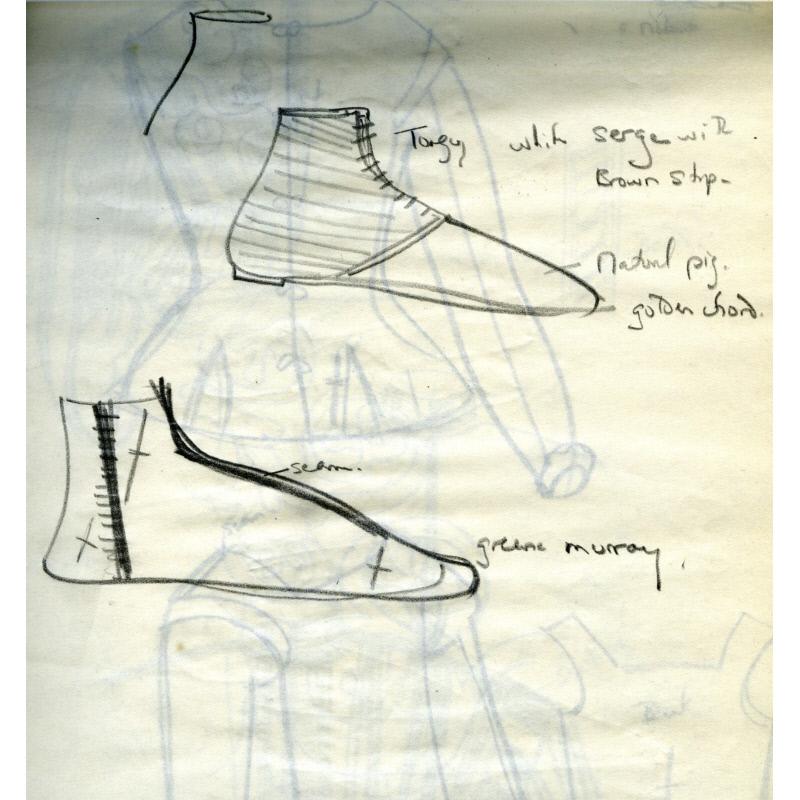 white serge with
Brown Strip-
Natural pig.
golden chord.
seam.
greene murray.